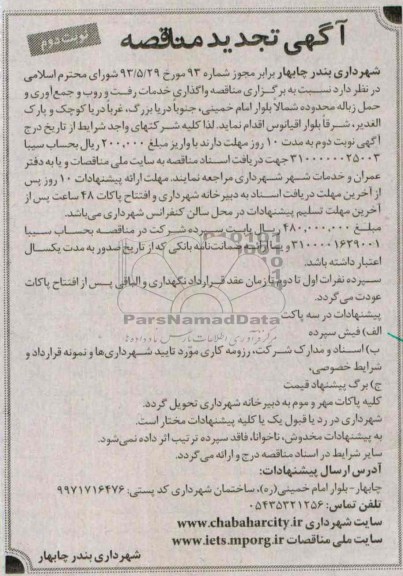 آگهی تجدید مناقصه
نوبت دوم
شهرداری بندر چابهار برابر مجوز شماره ۹۳ مورخ ۹۳/۵/۲۹ شورای محترم اسلامی
در نظر دارد نسبت به برگزاری مناقصه واگذاری خدمات رفت و روب و جمع آوری و
حمل زباله محدوده شمالا بلوار امام خمینی، جنوبا دریا بزرگ، غربا دریا کوچک و پارک
الغدیر، شرقا بلوار اقیانوس اقدام نماید. لذا کلیه شرکتهای واجد شرایط از تاریخ درج
آگهی نوبت دوم به مدت ۱۰ روز مهلت دارند با واریز مبلغ ۲۰۰,۰۰۰ ریال بحساب سیبا
۳۱۰۰۰۰۰۰۲۵۰۰۳ جهت دریافت اسناد مناقصه به سایت ملی مناقصات و یا به دفتر
عمران و خدمات شهر شهرداری مراجعه نمایند. مهلت ارائه پیشنهادات ۱۰ روز پس
از آخرین مهلت دریافت اسناد به دبیرخانه شهرداری و افتتاح پاکات ۴۸ ساعت پس از
آخرین مهلت تسلیم پیشنهادات در محل سالن کنفرانس شهرداری می‌باشد.
مبلغ ۴۸۰,۰۰۰,۰۰۰ ریال بابت سپرده شرکت در مناقصه بحساب سیبا
۳۱۰۰۰۰۱۶۲۹۰۰۱ و یا ضمانت‌نامه بانکی که از تاریخ صدور به مدت یکسال
اعتبار داشته باشد.
سپرده نفرات اول تا دوم تا زمان عقد قرارداد نگهداری و الباقی پس از افتتاح پاکات
عودت می‌گردد.
پیشنهادات در سه پاکت
ParsNamadData
الف) فیش سپرده
ب) اسناد و مدارک شرکت، رزومه کاری مورد تایید شهرداری‌ها و نمونه قرارداد و
شرایط خصوصی،
ج) برگ پیشنهاد قیمت
کلیه پاکات مهر و موم به دبیرخانه شهرداری تحویل گردد.
شهرداری در رد یا قبول یک یا کلیه پیشنهادات مختار است.
به پیشنهادات مخدوش، ناخوانا، فاقد سپرده ترتیب اثر داده نمی‌شود.
سایر شرایط در اسناد مناقصه درج و ارائه می‌گردد.
آدرس ارسال پیشنهادات:
چابهار- بلوار امام خمینی(ره)، ساختمان شهرداری کد پستی: ۹۹۷۱۷۱۶۴۷۶
تلفن تماس: ۰۵۴۳۵۳۲۱۲۵۶
سایت شهرداری www.chabaharcity.ir
سایت ملی مناقصات www.iets.mporg.ir
شهرداری بندر چابهار